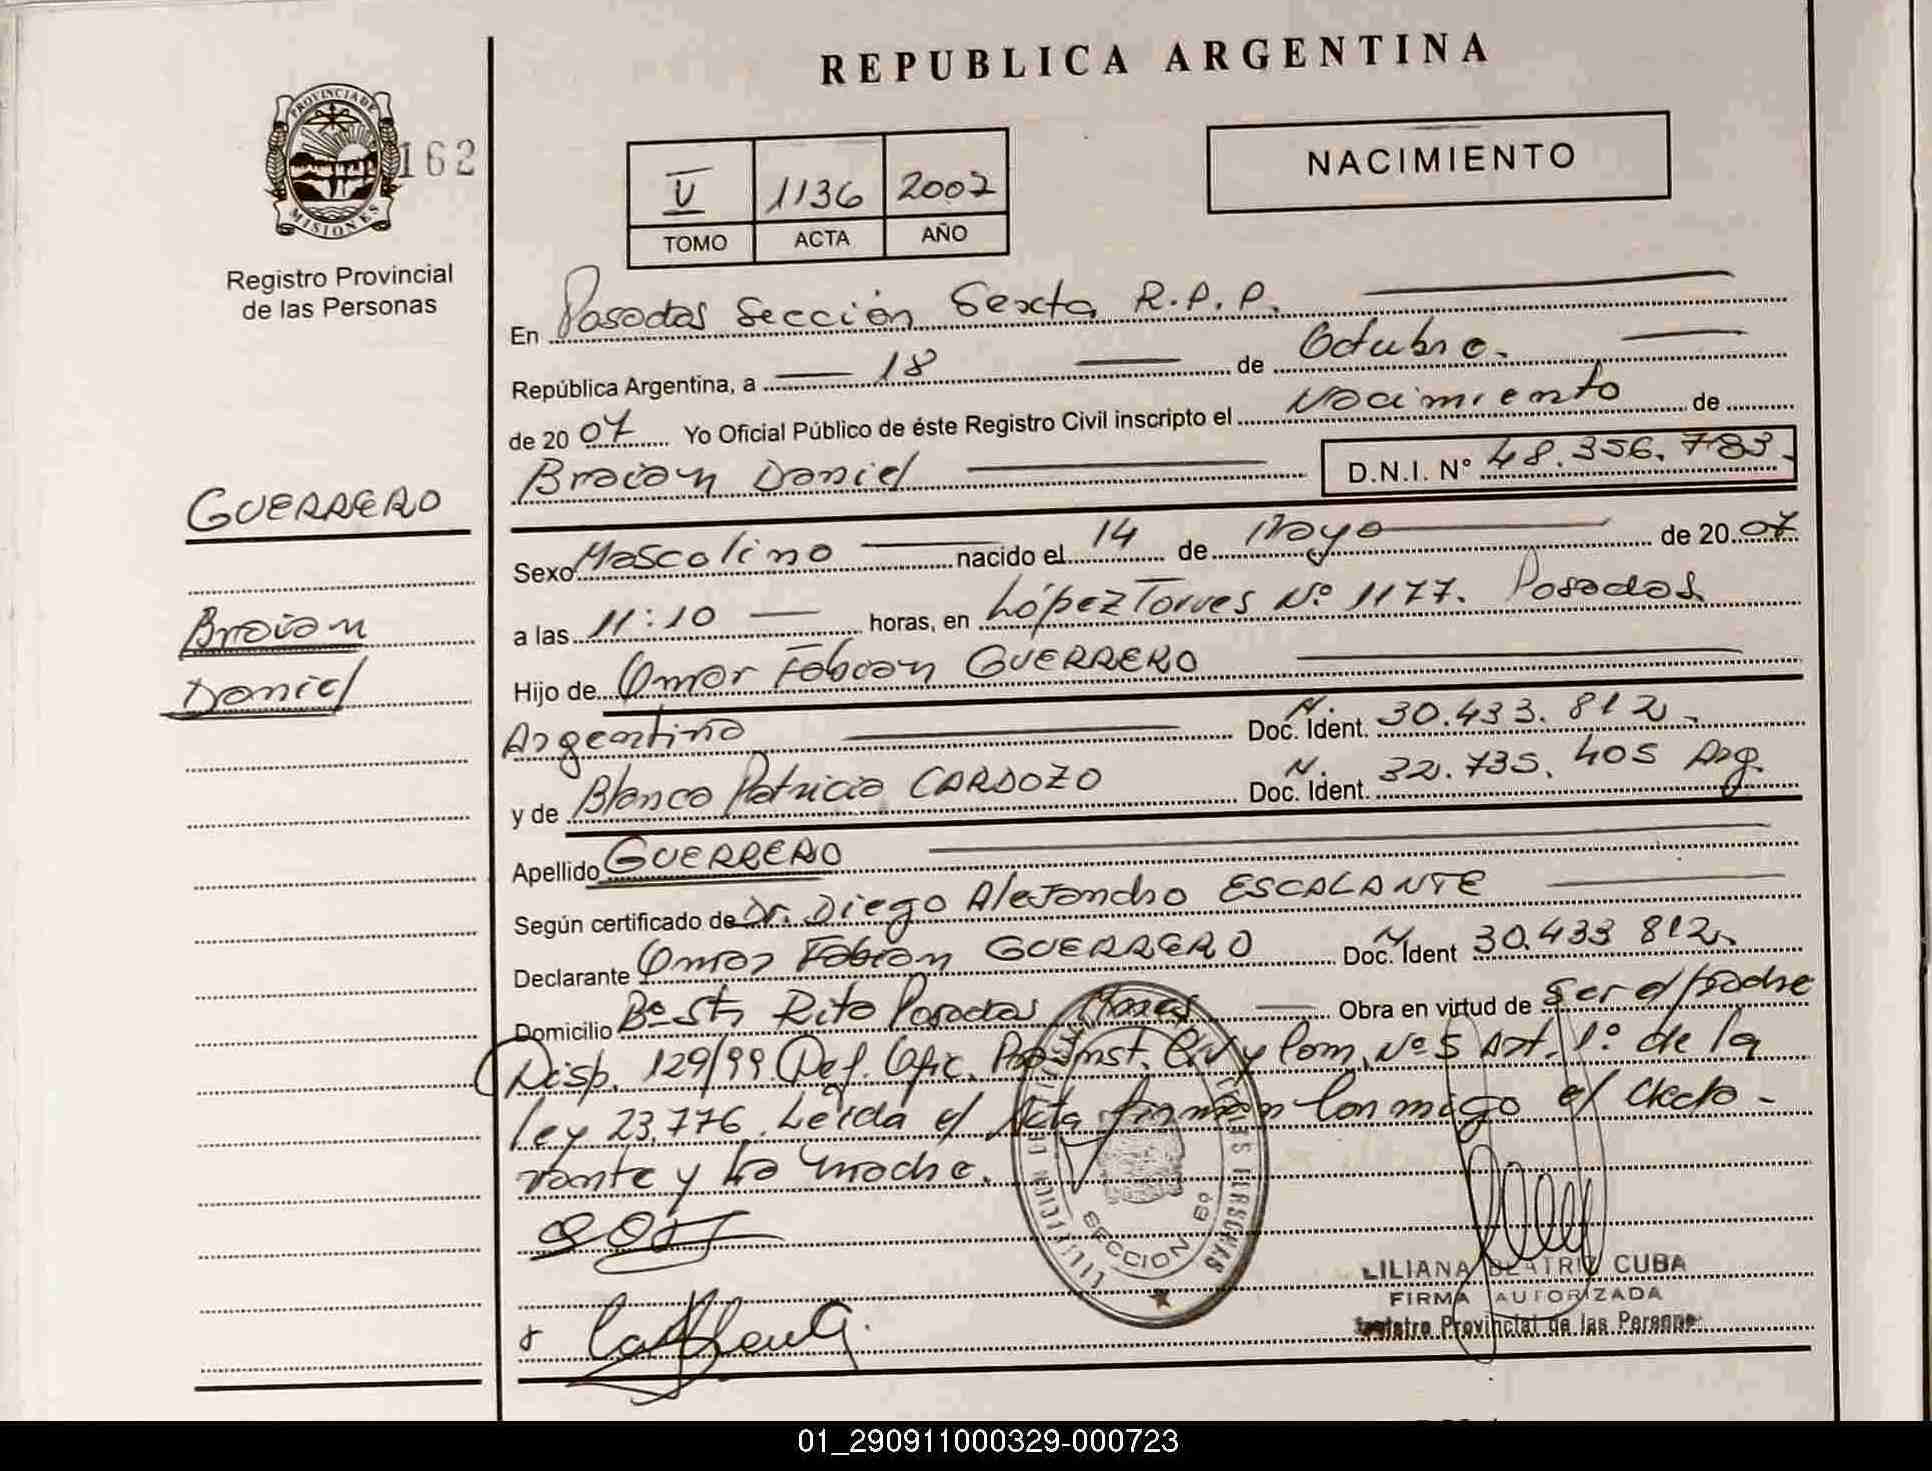 REPUBLICA ARGENTINA
PROVINCIA DE MISIONES
162
Registro Provincial
de las Personas
V 1136 2007
TOMO ACTA AÑO
NACIMIENTO
En Posadas Sección Sexta R.P.P.
República Argentina, a 18 de Octubre.
de 2007 Yo Oficial Público de éste Registro Civil inscripto el Nacimiento de
Braian Daniel D.N.I. N° 48.356.783.
GUERRERO
Braian
Daniel
Sexo Masculino nacido el 14 de Mayo de 2007
a las 11:10 horas, en López Torres Nº 1177. Posadas
Hijo de Omar Fabian GUERRERO
Argentino N. Doc. Ident. 30.433.812
y de Blanca Patricia CARDOZO N. Doc. Ident. 32.735.405 Arg.
Apellido GUERRERO
Según certificado de Dr. Diego Alejandro ESCALANTE
Declarante Omar Fabian GUERRERO N Doc. Ident 30.433 812
Domicilio Bº Sta Rita Posadas Mnes Obra en virtud de ser el padre
Disp. 129/99 Def. Ofic. Inst. Civ y Com. Nº 5 Art. 1º de la
ley 23.776. Leída el Acta firman conmigo el decla-
rante y la madre.
SECCION 6º
LILIANA BEATRIZ CUBA
FIRMA AUTORIZADA
Registro Provincial de las Personas
01_290911000329-000723